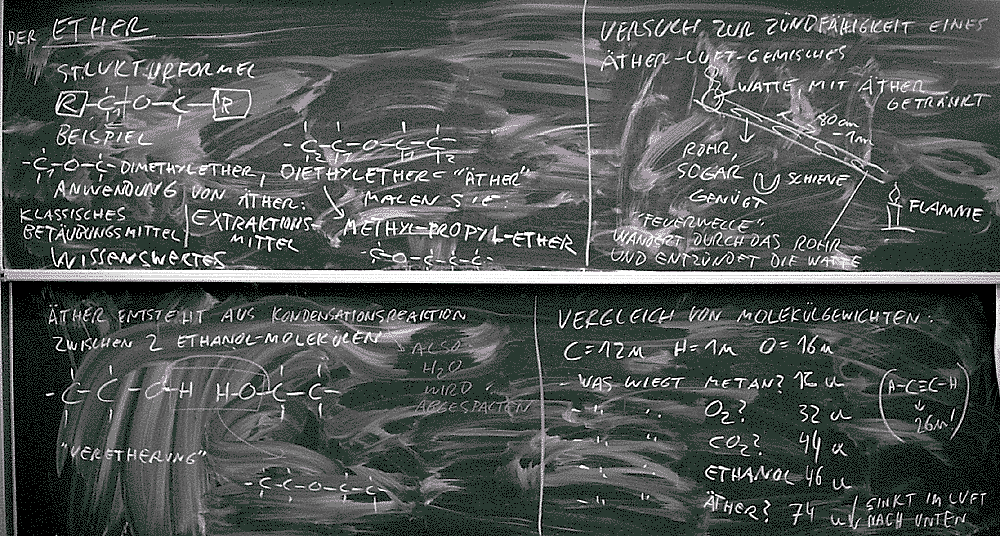 DER ETHER
STRUKTURFORMEL
R-C-O-C-R
BEISPIEL
-C-O-C- DIMETHYLETHER,
-C-C-O-C-C-
DIETHYLETHER = "ÄTHER"
ANWENDUNG VON ÄTHER:
MALEN SIE:
KLASSISCHES
BETÄUBUNGSMITTEL
EXTRAKTIONS-
MITTEL
METHYL-PROPYL-ETHER
-C-O-C-C-C-
WISSENSWERTES
VERSUCH ZUR ZÜNDFÄHIGKEIT EINES
ÄTHER-LUFT-GEMISCHES
WATTE, MIT ÄTHER
GETRÄNKT
80cm
-1m
ROHR,
SOGAR
SCHIENE
GENÜGT
FLAMME
"FEUERWELLE"
WANDERT DURCH DAS ROHR
UND ENTZÜNDET DIE WATTE
ÄTHER ENTSTEHT AUS KONDENSATIONSREAKTION
ZWISCHEN 2 ETHANOL-MOLEKÜLEN
ALSO
H2O
WIRD
ABGESPALTEN
-C-C-O-H H-O-C-C-
"VERETHERUNG"
-C-C-O-C-C-
VERGLEICH VON MOLEKÜLGEWICHTEN:
C=12u H=1u O=16u
- WAS WIEGT METAN? 16 u
- " " O2? 32 u
- " " CO2? 44 u
- " " ETHANOL 46 u
- " " ÄTHER? 74 u
SINKT IM LUFT
NACH UNTEN
H-C≡C-H
26u!